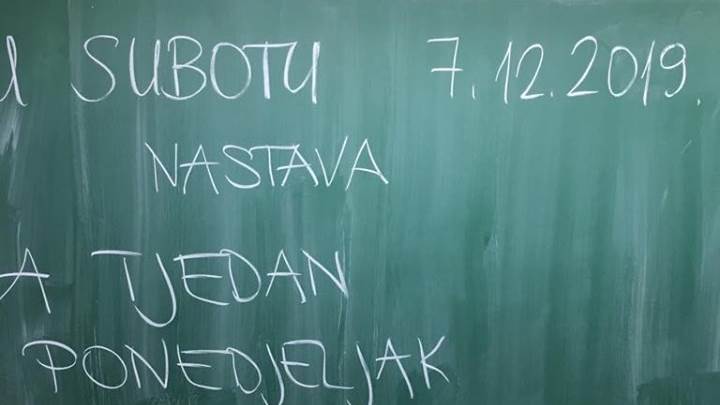 U SUBOTU 7.12.2019.
NASTAVA
A TJEDAN
PONEDJELJAK